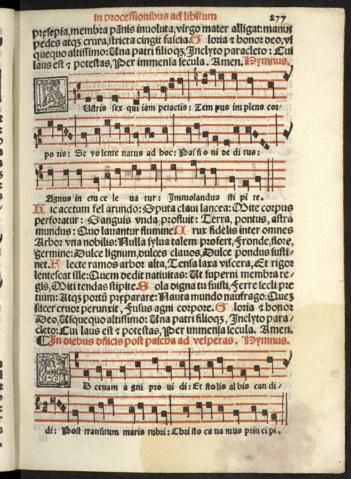 in processionibus ad libitum 277
presepia, membra pānis inuoluta, virgo mater alligat: manus
pedes atq; crura, stricta cingit fascia. Gloria et honor deo, vs
quequo altissimo: Una patri filioq;, Inclyto paracleto: Cui
laus est et potestas, Per immensa secula. Amen. Hymnus.
Lustris sex qui iam peractis: Tempus implens cor
poris: Se volente natus ad hoc: Passioni deditus:
Agnus in cruce leuatur: Immolandus stipite.
Hic acetum fel arundo: Sputa claui lancea: Mite corpus
perforatur: Sanguis vnda profluit: Terra, pontus, astra
mundus: Quo lauantur flumine. Crux fidelis inter omnes
Arbor vna nobilis: Nulla sylua talem profert, Fronde, flore,
germine: Dulce lignum, dulces clauos, Dulce pondus susti-
net. Flecte ramos arbor alta, Tensa laxa viscera, Et rigor
lentescat ille: Quem dedit natiuitas: Ut superni membra re-
gis, Miti tendas stipite. Sola digna tu fuisti, Ferre secli pre
tium: Atq; portū preparare: Nauta mundo naufrago: Quez
sacer cruor perunxit, Fusus agni corpore. Gloria et honor
Deo Usquequo altissimo: Una patri filioq;, Inclyto para-
cleto: Cui laus est et potestas, Per immensa secula. Amen.
In diebus dñicis post pascha ad vesperas. Hymnus.
Ad cenam agni prouidi: Et stolis albis candi-
di: Post transitum maris rubri: Christo canamus principi.